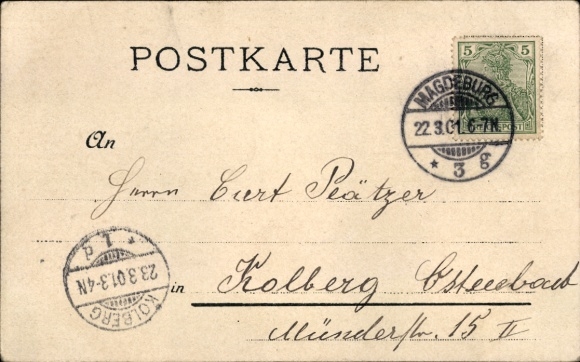 POSTKARTE
5 5
REICHSPOST
MAGDEBURG
22.3.01.6-7N
* 3 g
An
Herrn Curt Plätzer
in Kolberg Ostseebad
Münderstr. 15 II
KOLBERG
23.3.01.3-4N
* 1 d